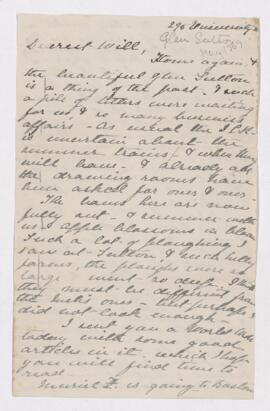 296 University St
Glen Sutton
May 1909
Dearest Will,
Home again, &
the beautiful Glen Sutton
is a thing of the past. Such
a pile of letters were waiting
for us & so many business
affairs - As usual the I.C.R.
is uncertain about the
summer trains & when they
will have - & already all
the drawing rooms have
been asked for ones & ones -
The leaves here are now
fully out - & summer with
us - apple blossoms in bloom
Such a lot of ploughing I
saw at Sutton & such hilly
farms, the ploughs were so
large & went so deep. I think
they must be different from
the Metis ones - but perhaps I
did not look enough -
I sent you a Worlds Work
today with some good
articles in it, which I hope
you will find time to
read.
Muriel is going to Boston